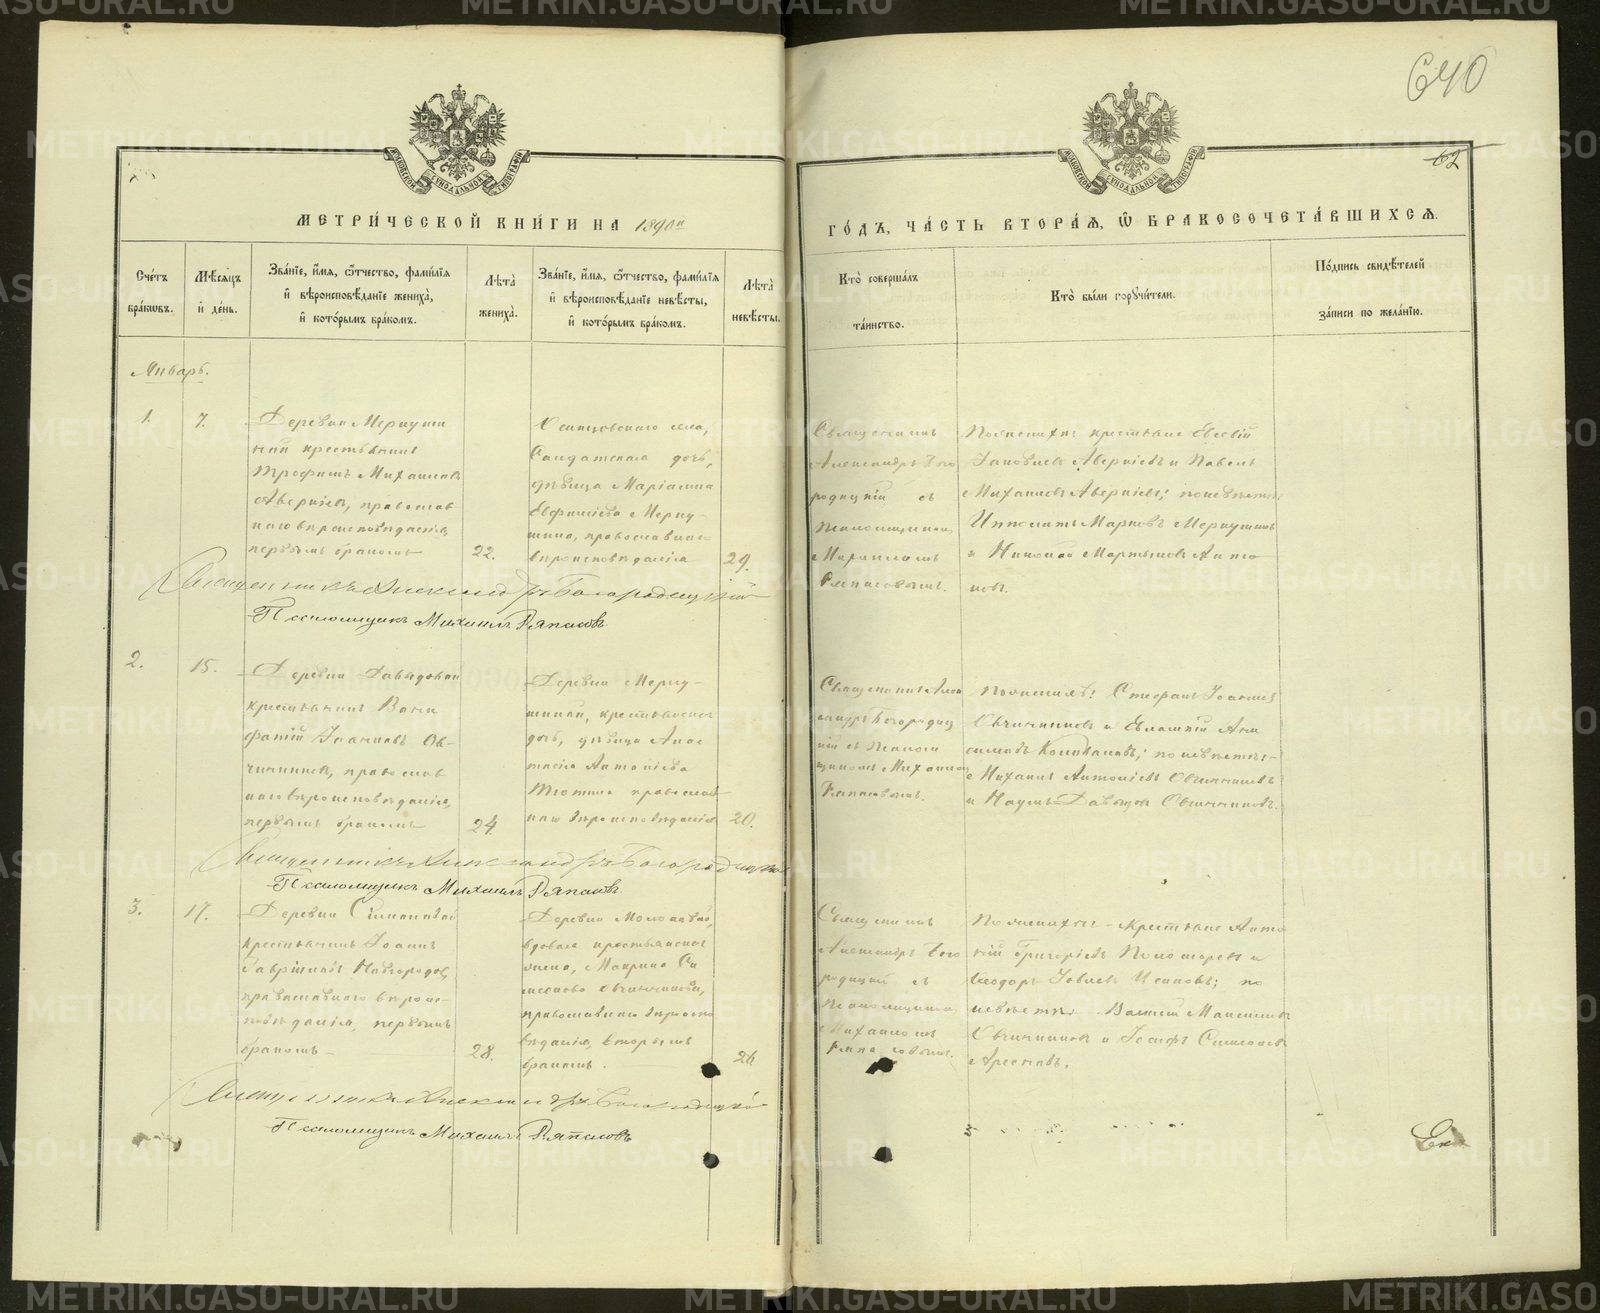 640
62
МОСКОВСКОЙ СѴНОДАЛЬНОЙ ТИПОГРАФІИ
МОСКОВСКОЙ СѴНОДАЛЬНОЙ ТИПОГРАФІИ
МЕТРИ́ЧЕСКОЙ КНИ́ГИ НА 1890й
ГО́ДЪ, ЧА́СТЬ ВТОРА́Я, Ѿ БРАКОСОЧЕТА́ВШИХСЯ.
Сче́тъ бра́ковъ.
Мѣ́сяцъ и҆ де́нь.
Зва́нїе, и҆́мя, ѻ҆́тчество, фами́лїѧ и҆ вѣроисповѣ́данїе жениха̀, и҆ кото́рымъ бра́комъ.
Лѣта̀ жениха̀.
Зва́нїе, и҆́мя, ѻ҆́тчество, фами́лїѧ и҆ вѣроисповѣ́данїе невѣ́сты, и҆ кото́рымъ бра́комъ.
Лѣта̀ невѣ́сты.
Кто̀ соверша́лъ та́инство.
Кто̀ бы́ли поручи́тели.
По́дпись свидѣ́телей за́писи по жела́нїю.
Январь.
1.
7.
Деревни Меркуши
ной крестьянинъ
Трофимъ Михаиловъ
Аверкіевъ, православ
наго вѣроисповѣданія,
первымъ бракомъ
22.
села,
Солдатская дочь,
дѣвица Маріамна
Евфиміева Мерку-
шина, православнаго
вѣроисповѣданія
29.
Священникъ
Александръ Бого
родицкій съ
псаломщикомъ
Михаиломъ
Ряпасовымъ.
По женихѣ: крестьяне Евсевій
Іаковлевъ Аверкіевъ и Павелъ
Михаиловъ Аверкіевъ; по невѣстѣ:
Ипполитъ Марковъ Меркушинъ
и Николай Мартыновъ Анто
новъ.
Священникъ Александръ Богородицкій
Псаломщикъ Михаилъ Ряпасовъ
2.
15.
Деревни Давыдовой
крестьянинъ Вони
фатій Іоанновъ Ов-
чинниковъ, православ
наго вѣроисповѣданія,
первымъ бракомъ
24.
Деревни Мерку-
шиной, крестьянская
дочь, дѣвица Анас
тасія Антоніева
православ
наго вѣроисповѣданія
20.
Священникъ Алек
сандръ Богородиц
кій съ псалом
щикомъ Михаиломъ
Ряпасовымъ.
По женихѣ: Стефанъ Іоанновъ
Овчинниковъ и Евлампій Ани
симовъ; по невѣстѣ:
Михаилъ Антоніевъ Овчинниковъ
и Наумъ Давыдовъ Овчинниковъ.
Священникъ Александръ Богородицкій
Псаломщикъ Михаилъ Ряпасовъ.
3.
17.
Деревни
крестьянинъ Іоаннъ
Гавріиловъ Новгородовъ,
православнаго вѣроис-
повѣданія, первымъ
бракомъ
28.
Деревни
вдовая крестьянская
жена, Маврина Си
меонова Овчинникова,
православнаго вѣроиспо
вѣданія, вторымъ
бракомъ.
26.
Священникъ
Александръ Бого
родицкій съ
псаломщикомъ
Михаиломъ
Ряпасовымъ.
По женихѣ: крестьяне Анто
ній Григоріевъ Пономаревъ и
Ѳеодоръ Іовлевъ Исаковъ; по
невѣстѣ: Василій Максимовъ
Овчинниковъ и Іосифъ Симеоновъ
Священникъ Александръ Богородицкій
Псаломщикъ Михаилъ Ряпасовъ
Ек
METRIKI.GASO-URAL.RU